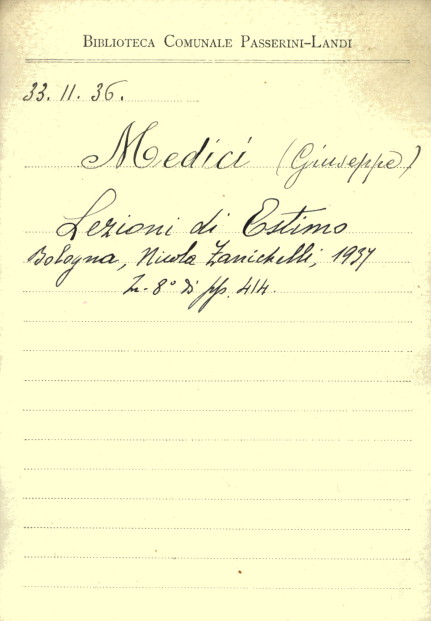 BIBLIOTECA COMUNALE PASSERINI-LANDI
33. 11. 36.
Medici (Giuseppe)
Lezioni di Estimo
Bologna, Nicola Zanichelli, 1937
In-8° di pp. 414.